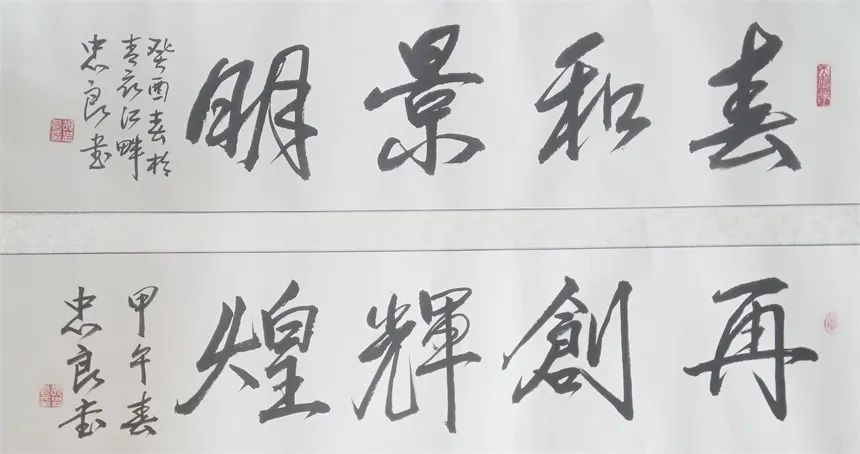 春和景明
癸酉春於
青衣江畔
忠良书
再創輝煌
甲午春
忠良书